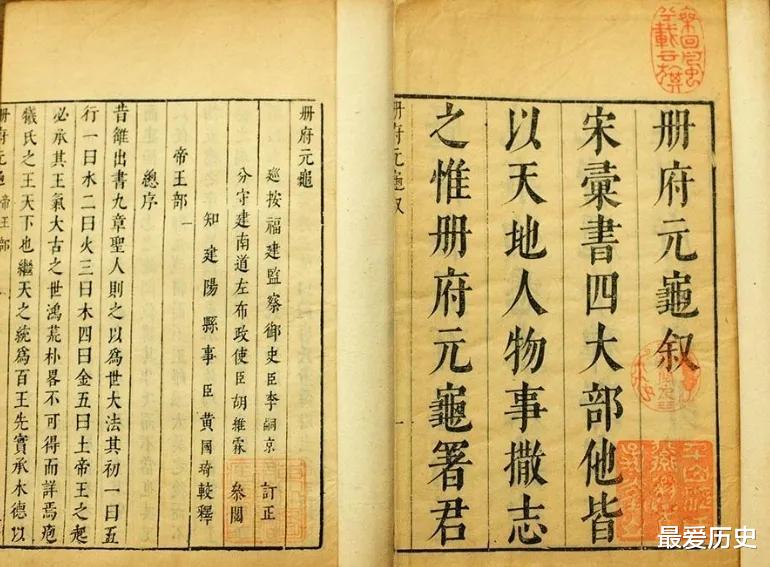 册府元龜叙
宋彙書四大部他皆
以天地人物事撒志
之惟册府元龜署君
册府元龜叙 一
册府元龜
巡按福建監察御史臣李嗣京 訂正
分守建南道左布政使臣胡維霖 參閱
知建陽縣事臣黃國琦較釋
帝王部 一
總序
昔雒出書九章聖人則之以爲世大法其初一曰五
行一曰水二曰火三曰木四曰金五曰土帝王之起
必承其王氣大古之世鴻荒朴畧不可得而詳焉庖
犧氏之王天下也繼天之統爲百王先實承木德以
册府元龜 帝王部
最爱历史